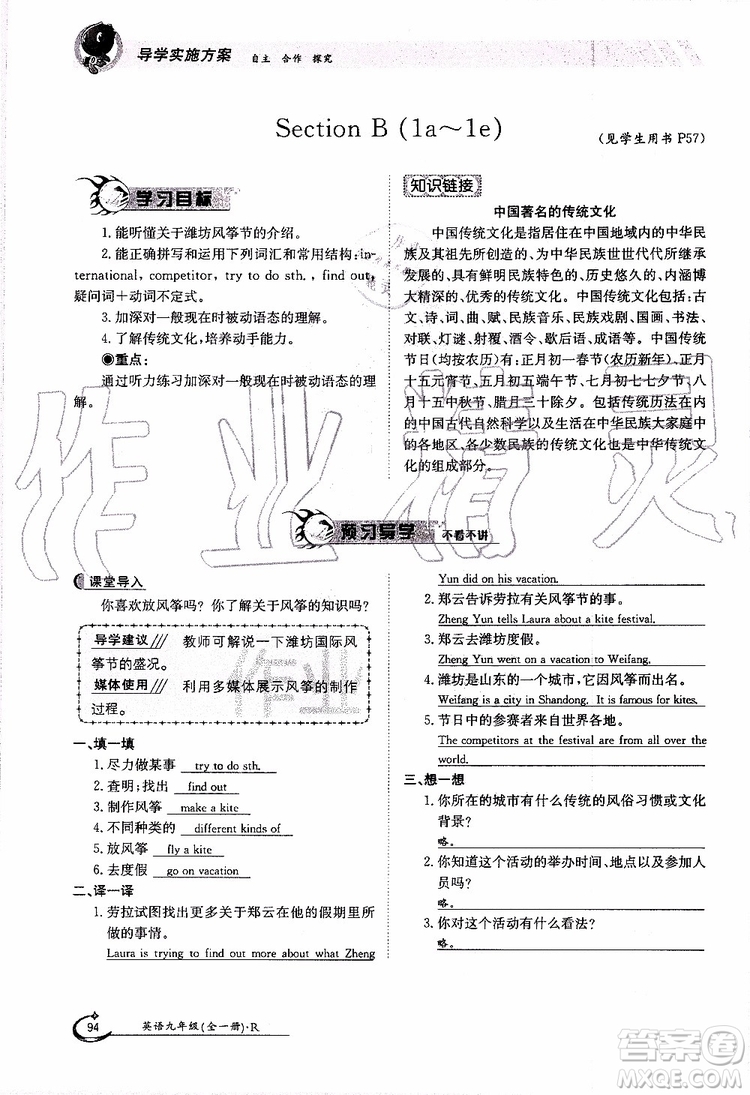 导学实施方案 自主 合作 探究
Section B (1a～1e)
(见学生用书 P57)
学习目标
1. 能听懂关于潍坊风筝节的介绍。
2. 能正确拼写和运用下列词汇和常用结构:in-
ternational, competitor, try to do sth. , find out,
疑问词＋动词不定式。
3. 加深对一般现在时被动语态的理解。
4. 了解传统文化,培养动手能力。
◉重点:
通过听力练习加深对一般现在时被动语态的理
解。
知识链接
中国著名的传统文化
中国传统文化是指居住在中国地域内的中华民
族及其祖先所创造的、为中华民族世世代代所继承
发展的、具有鲜明民族特色的、历史悠久的、内涵博
大精深的、优秀的传统文化。中国传统文化包括:古
文、诗、词、曲、赋、民族音乐、民族戏剧、国画、书法、
对联、灯谜、射覆、酒令、歇后语、成语等。中国传统
节日(均按农历)有:正月初一春节(农历新年)、正月
十五元宵节、五月初五端午节、七月初七七夕节、八
月十五中秋节、腊月三十除夕。包括传统历法在内
的中国古代自然科学以及生活在中华民族大家庭中
的各地区、各少数民族的传统文化也是中华传统文化
的组成部分。
预习导学 不看不讲
课堂导入
你喜欢放风筝吗？你了解关于风筝的知识吗？
导学建议 教师可解说一下潍坊国际风
筝节的盛况。
媒体使用 利用多媒体展示风筝的制作
过程。
一、填一填
1. 尽力做某事 try to do sth.
2. 查明;找出 find out
3. 制作风筝 make a kite
4. 不同种类的 different kinds of
5. 放风筝 fly a kite
6. 去度假 go on vacation
二、译一译
1. 劳拉试图找出更多关于郑云在他的假期里所
做的事情。
Laura is trying to find out more about what Zheng
Yun did on his vacation.
2. 郑云告诉劳拉有关风筝节的事。
Zheng Yun tells Laura about a kite festival.
3. 郑云去潍坊度假。
Zheng Yun went on a vacation to Weifang.
4. 潍坊是山东的一个城市,它因风筝而著名。
Weifang is a city in Shandong. It is famous for kites.
5. 节日中的参赛者来自世界各地。
The competitors at the festival are from all over the
world.
三、想一想
1. 你所在的城市有什么传统的风俗习惯或文化
背景？
略。
2. 你知道这个活动的举办时间、地点以及参加人
员吗？
略。
3. 你对这个活动有什么看法？
略。
94 英语九年级(全一册)·R
作业精灵
作业
答案圈
MXQE.COM